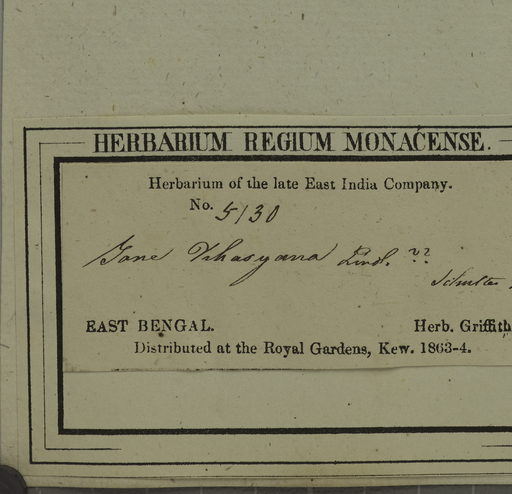 HERBARIUM REGIUM MONACENSE.
Herbarium of the late East India Company.
No. 5130
Ione Khasyana Lindl. ??
Schultes
EAST BENGAL.
Herb. Griffith
Distributed at the Royal Gardens, Kew. 1863-4.